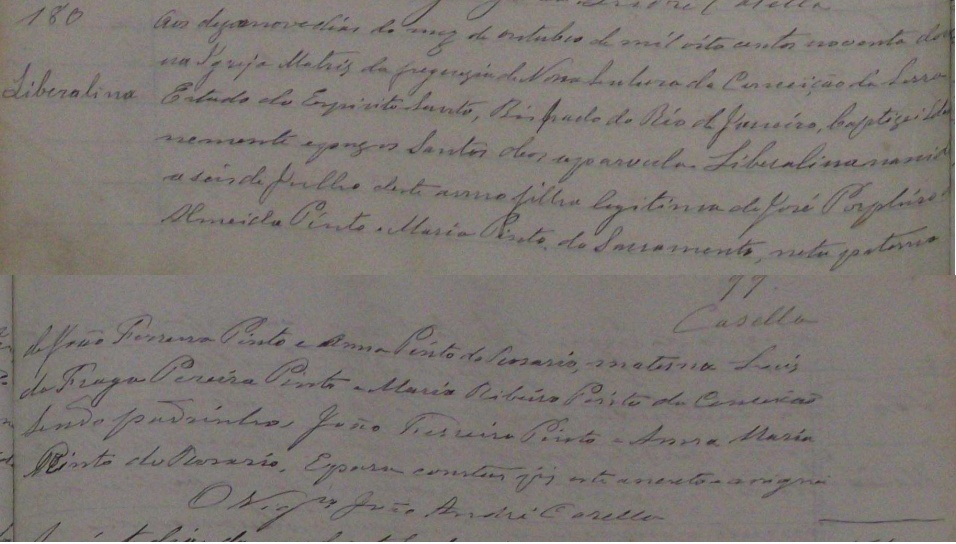 180
João André Casella
Aos dezanove dias do mez de outubro de mil oito centos noventa dous
na Igreja Matriz da freguezia de Nossa Senhora da Conceição da Serra
Liberalina
Estado do Espirito Santo, Bispado do Rio de Janeiro, baptizei Sole
nemente e puz os Santos oleos a parvula Liberalina nascid
a seis de Julho deste anno filha legitima de José Porphirio
Almeida Pinto e Maria Pinto do Sacramento, neta paterna
99
Casella
de João Ferreira Pinto e Anna Pinto do Rosario, materna Luis
do Fraga Pereira Pinto e Maria Ribeiro Pinto da Conceição
Sendo padrinhos João Ferreira Pinto e Anna Maria
Pinto do Rosario. E para constar fiz este assento e assignei
O Vigrº João André Casella